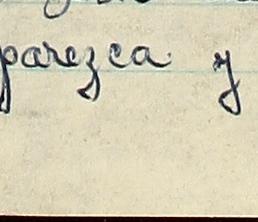 parezca y